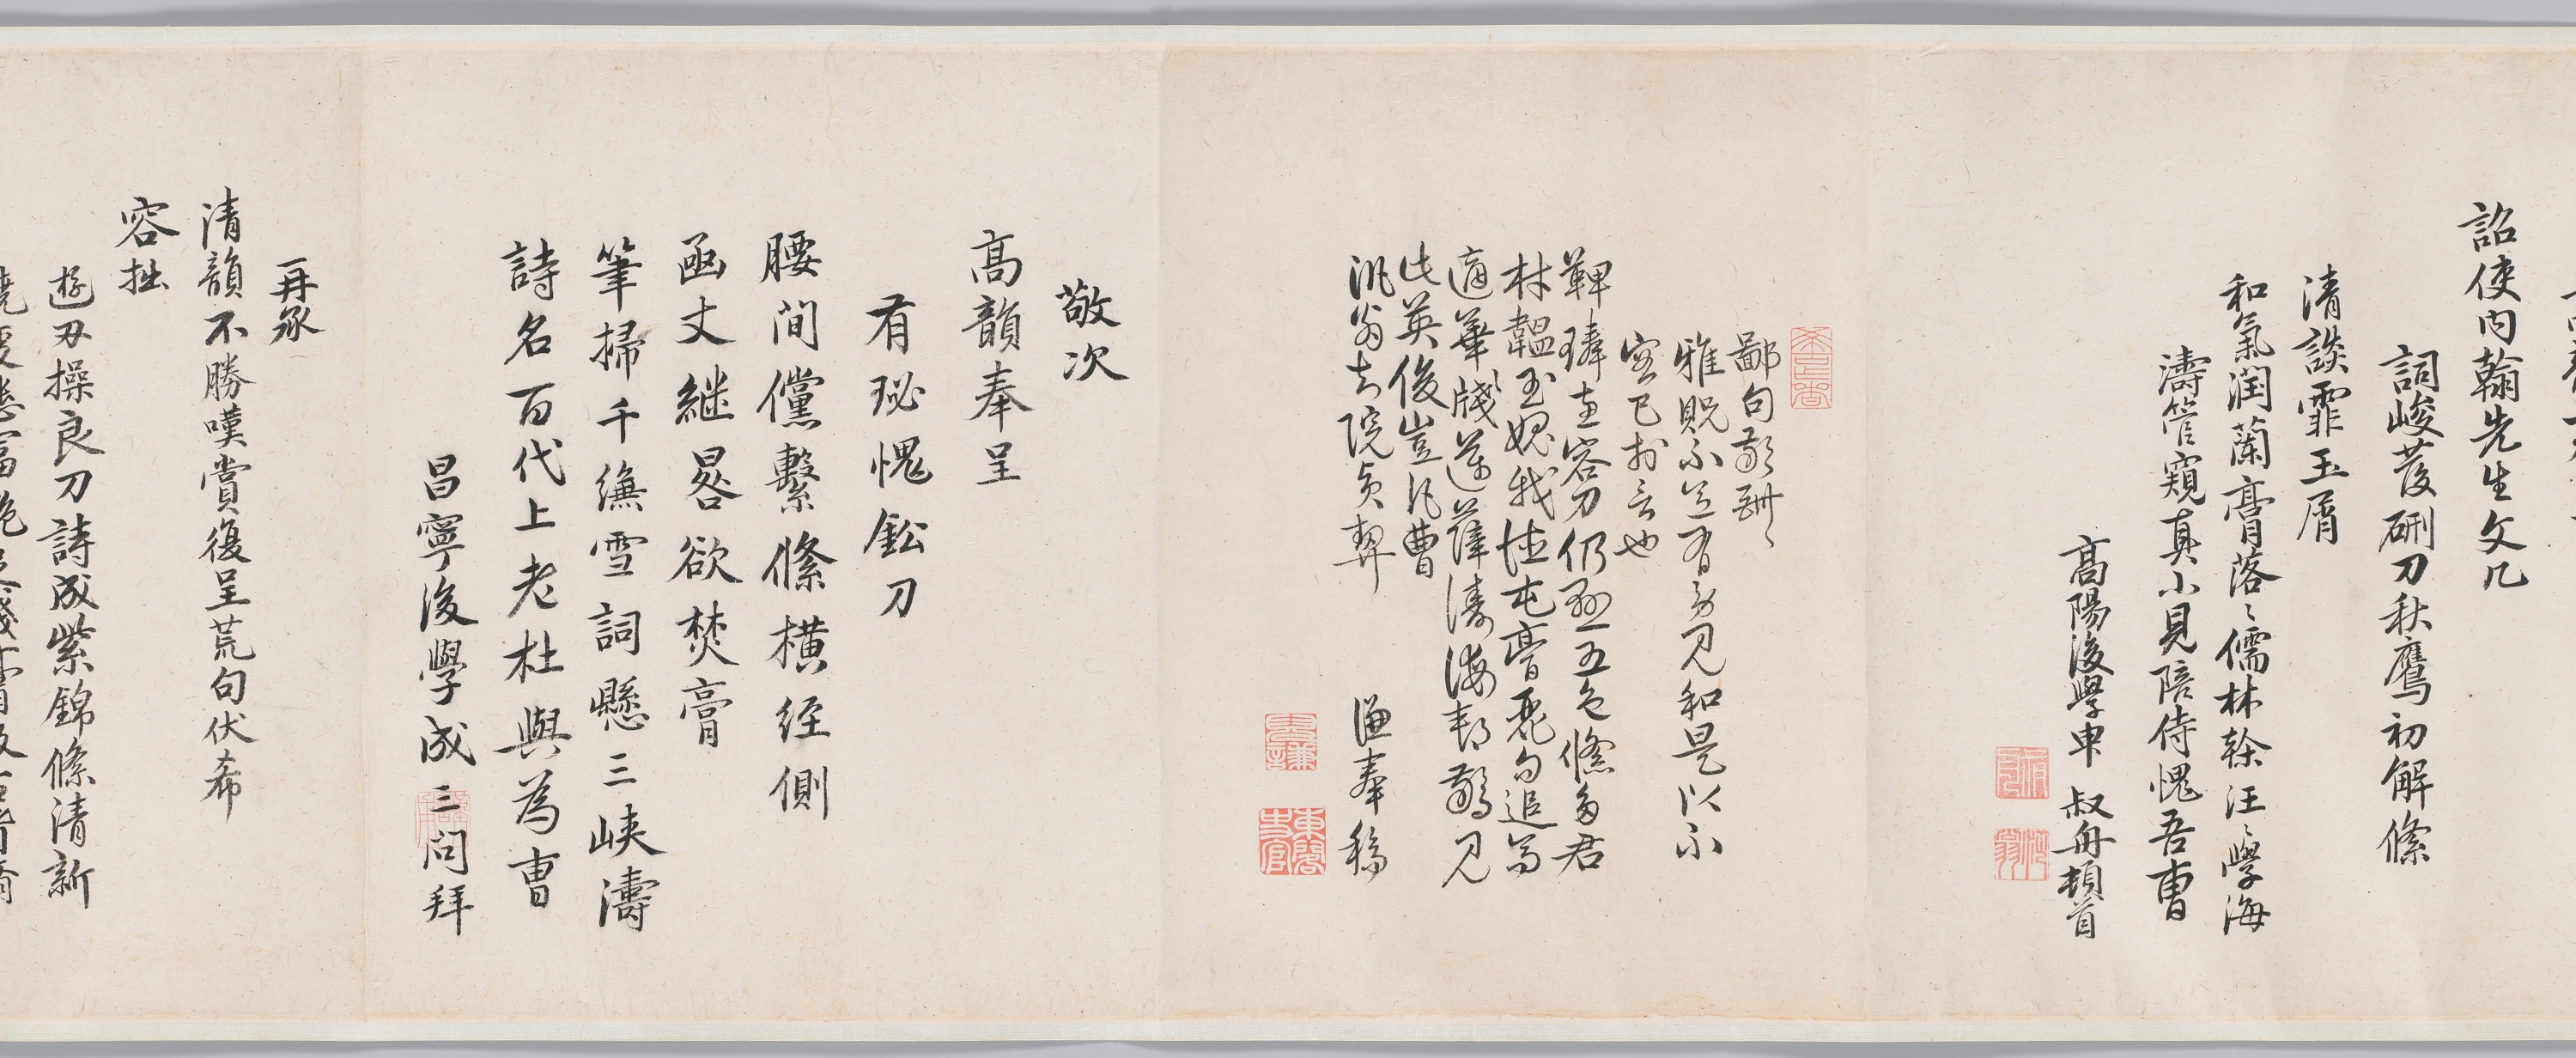 詔使內翰先生文几
詞峻發硎刀秋鷹初解絛
清談霏玉屑
和氣潤蘭膏落〻儒林幹汪〻學海
濤管窺真小見陪侍愧吾曹
高陽後學申叔舟頓首
鄙句敬酬
雅貺不足有勞見和是以不
容已於言也
鞞琫直容刀仍垂五色絛多君
材韞玉媿我性屯膏麗句追高
適華牋送薛濤海邦驚見
此英俊豈凡曹
汎翁知院貞契
謙奉稿
敬次
高韻奉呈
有珌愧鉛刀
腰間儻繫絛橫經側
函丈継晷欲焚膏
筆掃千縑雪詞懸三峽濤
詩名百代上老杜與為曹
昌寧後學成三問拜
再承
清韻不勝嘆賞復呈荒句伏希
容拙
遊刃操良刀詩成紫錦絛清新